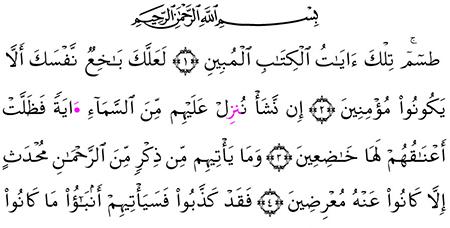 بِسْمِ اللَّهِ الرَّحْمَٰنِ الرَّحِيمِ
طسٓمٓۚ تِلْكَ ءَايَٰتُ الْكِتَٰبِ الْمُبِينِ ۝١ لَعَلَّكَ بَٰخِعٌ نَّفْسَكَ أَلَّا
يَكُونُوا۟ مُؤْمِنِينَ ۝٢ إِن نَّشَأْ نُنزِلْ عَلَيْهِم مِّنَ السَّمَآءِ ءَايَةً فَظَلَّتْ
أَعْنَٰقُهُمْ لَهَا خَٰضِعِينَ ۝٣ وَمَا يَأْتِيهِم مِّن ذِكْرٍ مِّنَ الرَّحْمَٰنِ مُحْدَثٍ
إِلَّا كَانُوا۟ عَنْهُ مُعْرِضِينَ ۝٤ فَقَدْ كَذَّبُوا۟ فَسَيَأْتِيهِمْ أَنۢبَٰٓؤُا۟ مَا كَانُوا۟